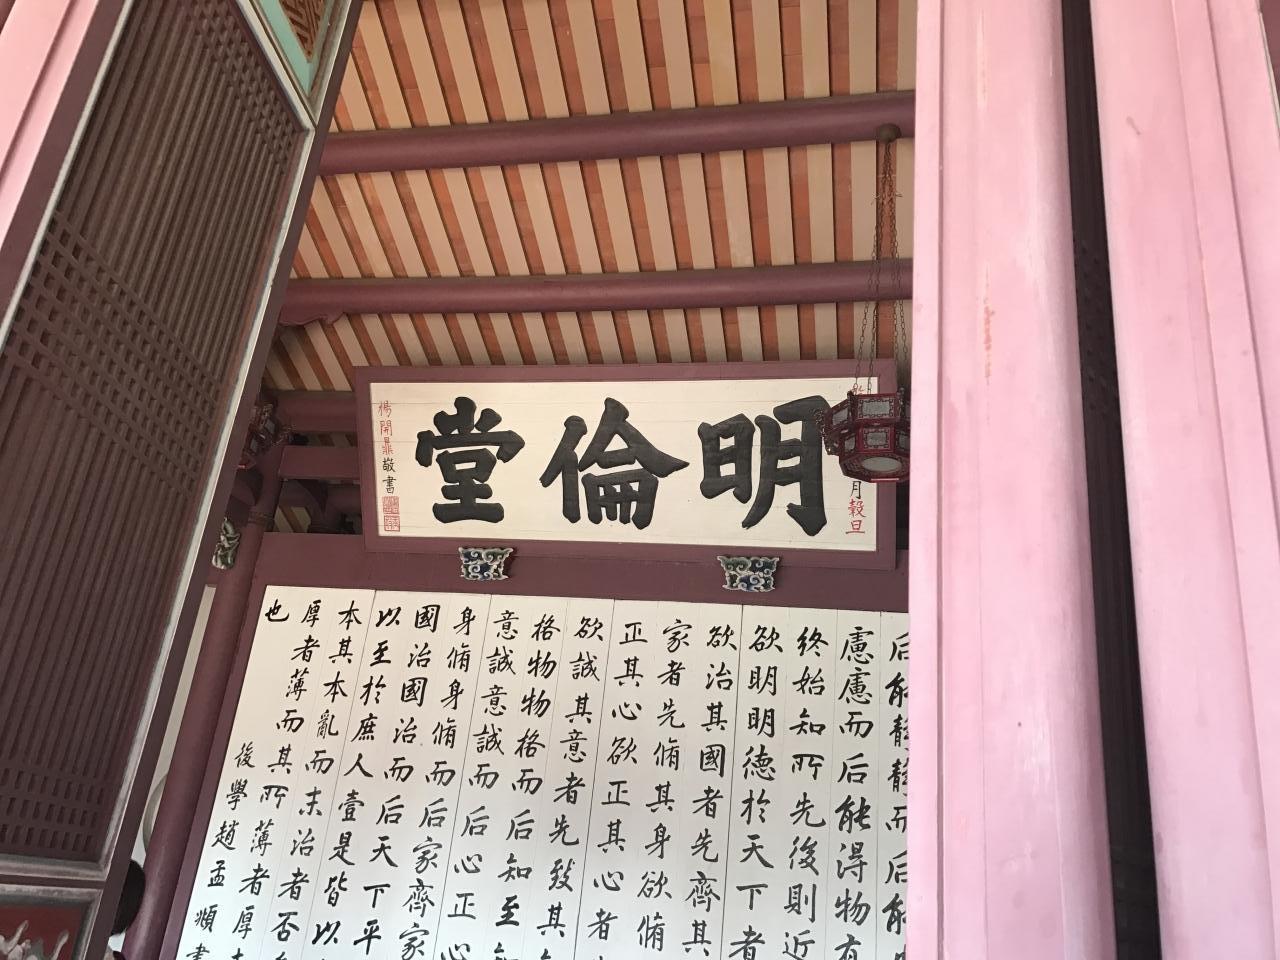 明倫堂
月穀旦
楊開鼎敬書
后能靜靜而后能
慮慮而后能得物有
終始知所先後則近
欲明明德於天下者
欲治其國者先齊其
家者先脩其身欲脩
正其心欲正其心者
欲誠其意者先致其
格物物格而后知至
意誠意誠而后心正
身脩身脩而后家齊家
國治國治而后天下平
以至於庶人壹是皆以
本其本亂而末治者否
厚者薄而其所薄者厚
也
後學趙孟頫書